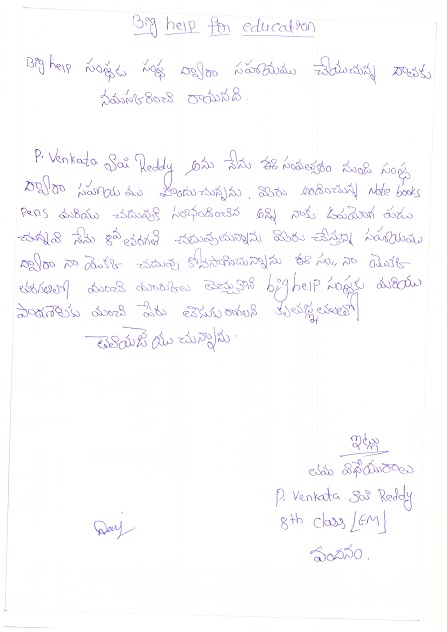 Big help for education
Big help సంస్థకు సంస్థ ద్వారా సహాయము చేయుచున్న దాతకు
నమస్కరించి రాయునది.
P. Venkata Sai Reddy అను నేను ఈ సంవత్సరం నుండి సంస్థ
ద్వారా సహాయము పొందుచున్నాను. మీరు అందించుచున్న note books
pens మరియు చదువుకి సంబంధించిన అన్ని నాకు ఉపయోగ పడు
చున్నవి నేను 8వ తరగతి చదువుచున్నాను మీరు చేస్తున్న సహాయము
ద్వారా నా యొక్క చదువు కొనసాగించున్నాను ఈ సం,, నా యొక్క
తరగతిలో మంచి మార్కులు తెచ్చుకొని big help సంస్థకు మరియు
పాఠశాలకు మంచి పేరు తీసుకు రాగలనని కృతజ్ఞతలతో
తెలియజేయుచున్నాను.
ఇట్లు
తమ విధేయురాలు
P. Venkata Sai Reddy
8th class [EM]
వందనం.